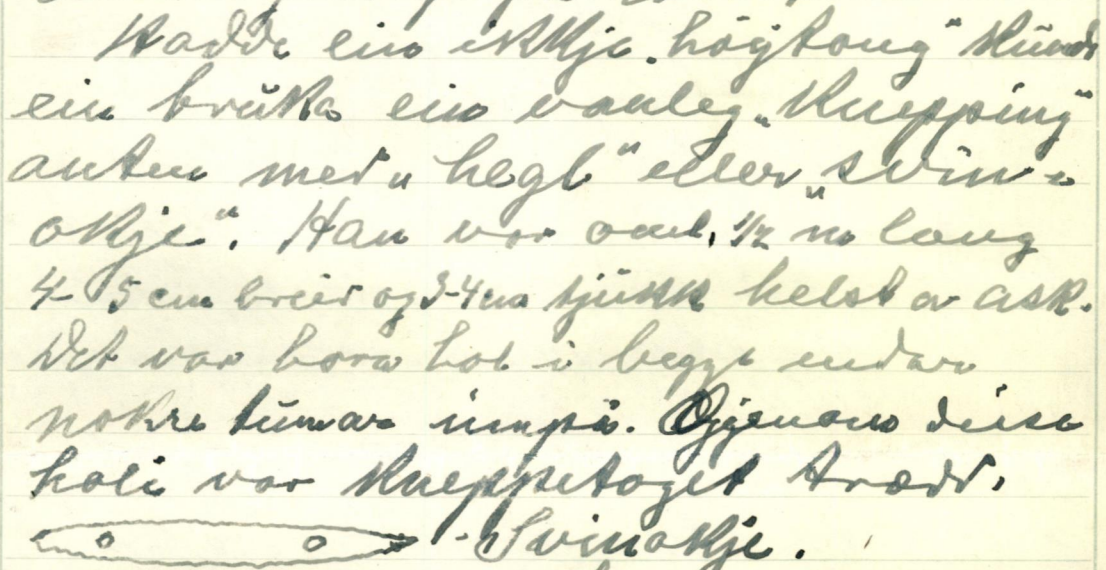 Hadde ein ikkje „högtong" kunde
ein bruka ein vanleg „knepping"
anten med „hegl" eller „svin-
okje". Han var oml. 1/2 m lang
4-5 cm breid og 3-4 cm tjukk helst av ask.
Det var bora hol i begge endar
nokre tumar innpå. Gjenom disse
holi var kneppetoget trædd.
- Svinokje.